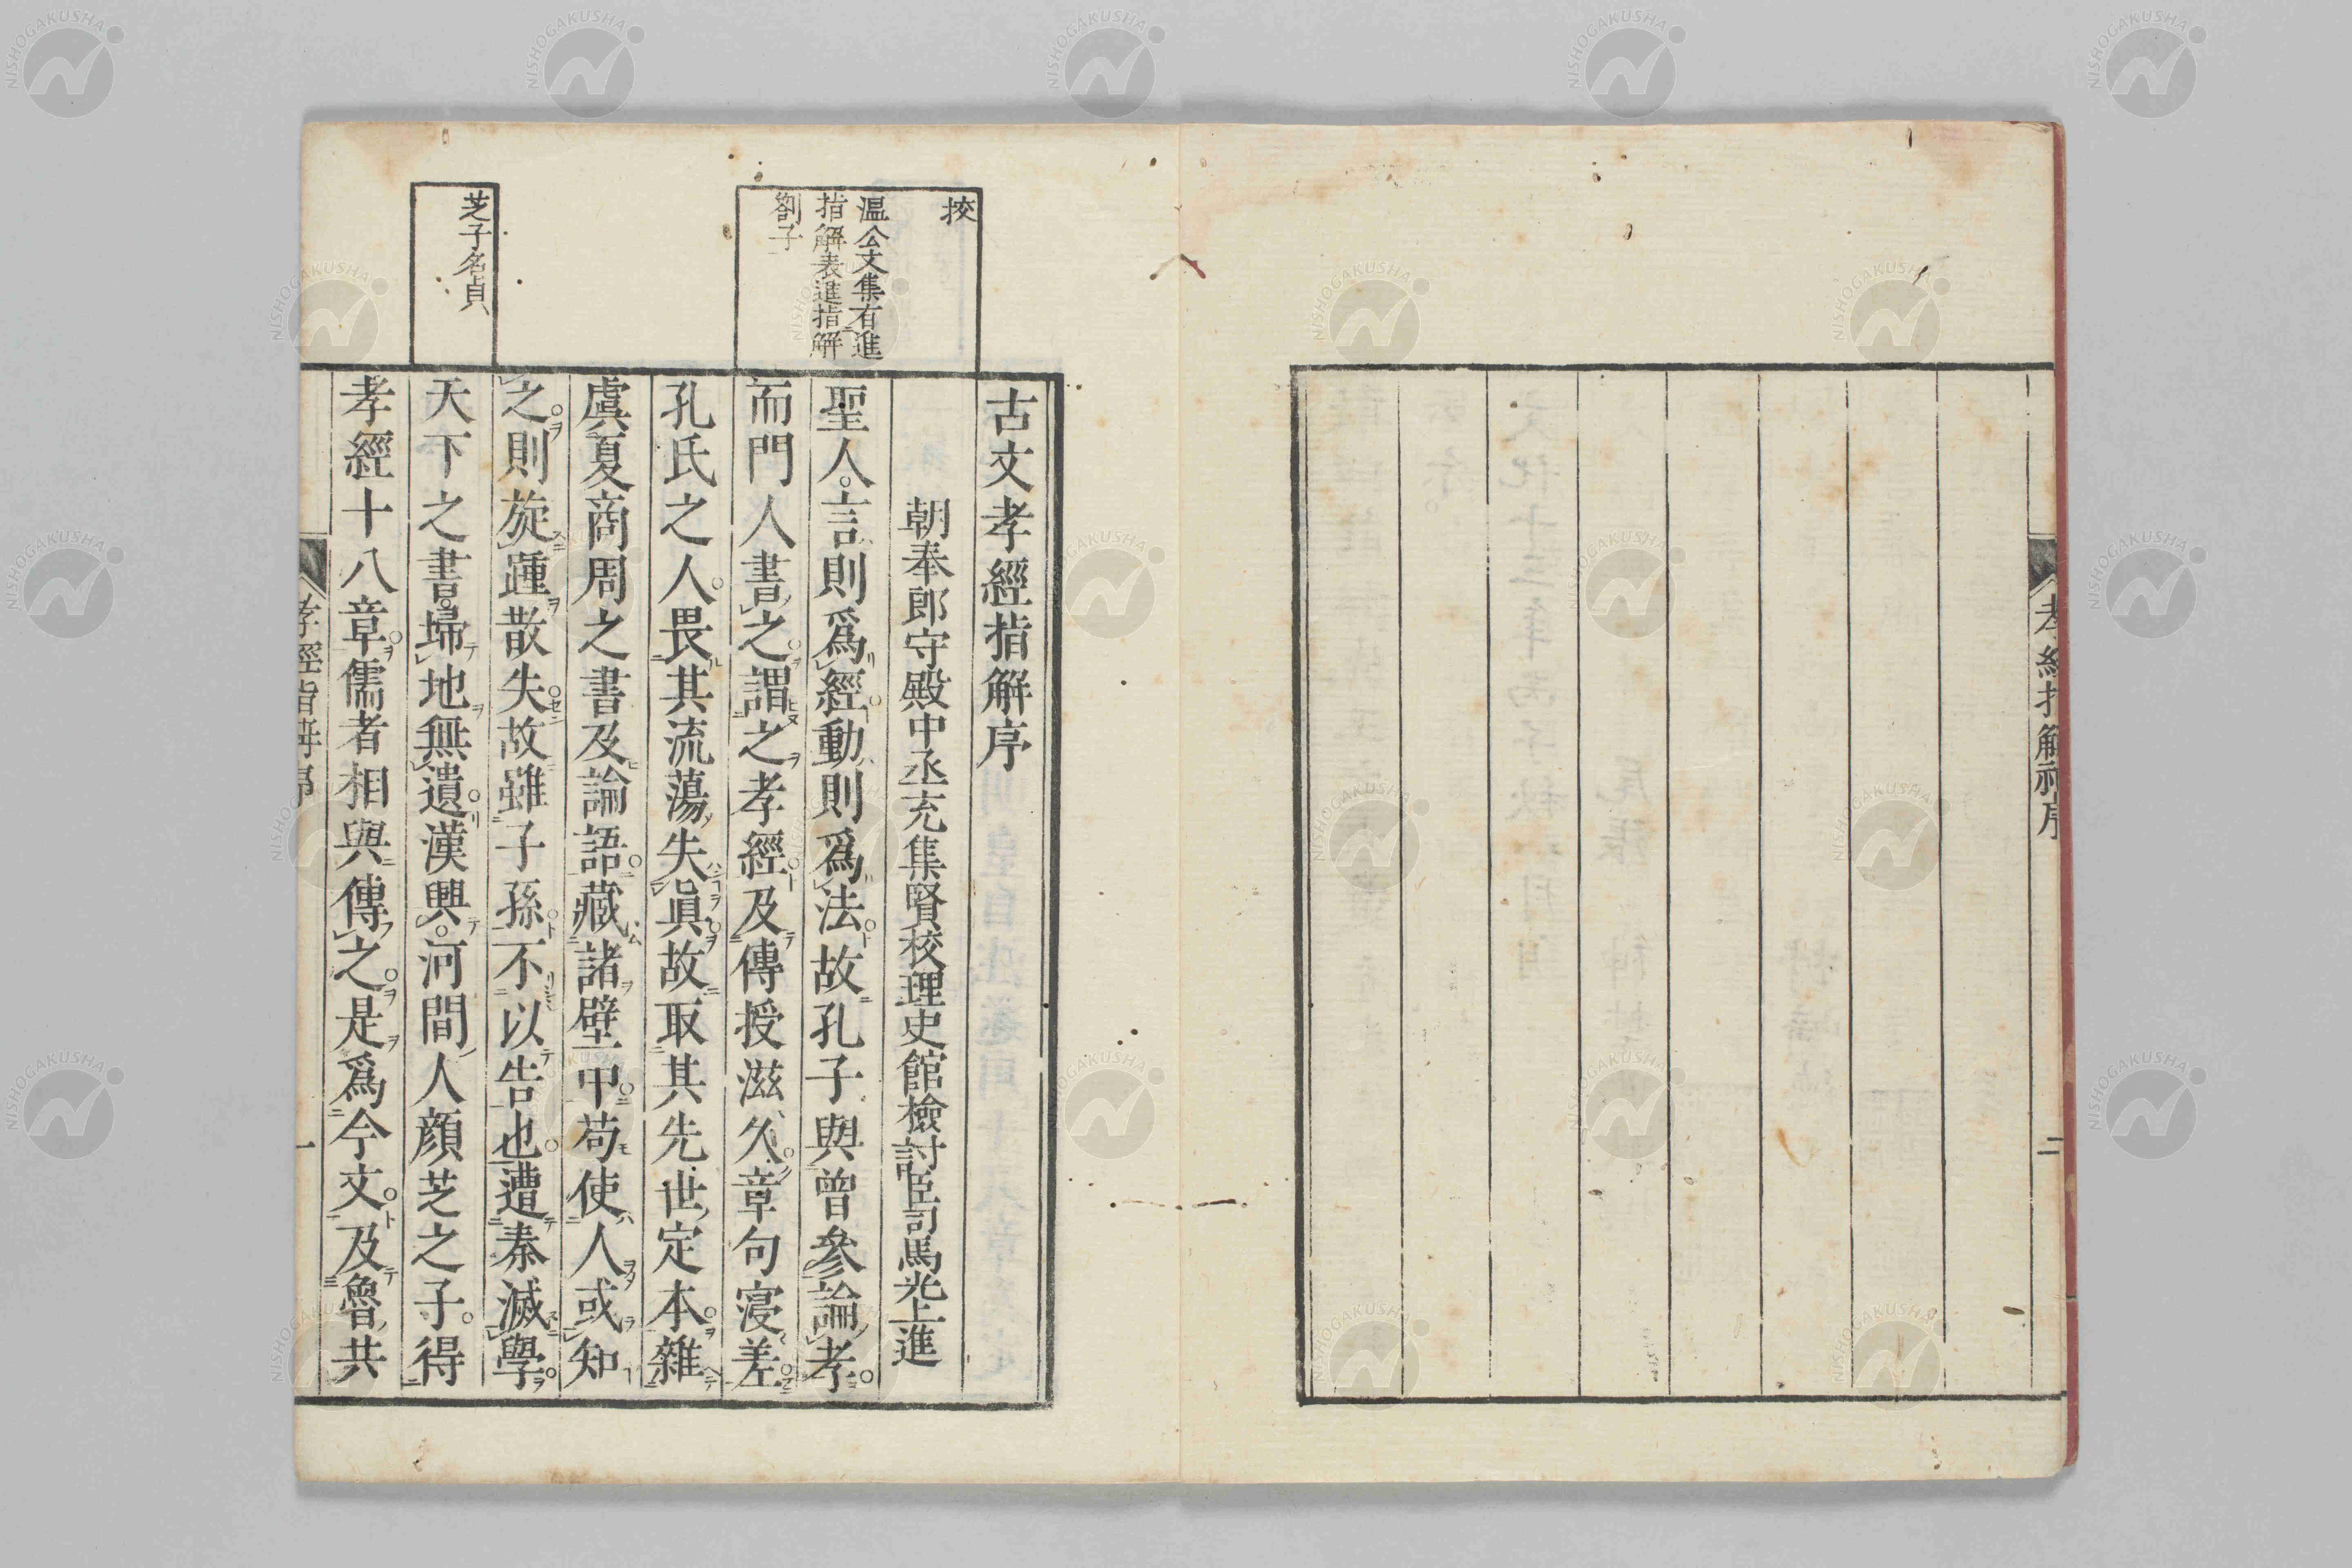 孝經指解
二
挍
溫公文集有進
指解表進指解
劄子
芝子名貞
古文孝經指解序
朝奉郎守殿中丞充集賢校理史館檢討臣司馬光上進
聖人言則爲經動則爲法故孔子與曾參論孝
而門人書之謂之孝經及傳授滋久章句寖差
孔氏之人畏其流蕩失眞故取其先世定本雜
虞夏商周之書及論語藏諸壁中苟使人或知
之則旋踵散失故雖子孫不以告也遭秦滅學
天下之書埽地無遺漢興河間人顏芝之子得
孝經十八章儒者相與傳之是爲今文及魯共
孝經指解序
一
NISHOGAKUSHA